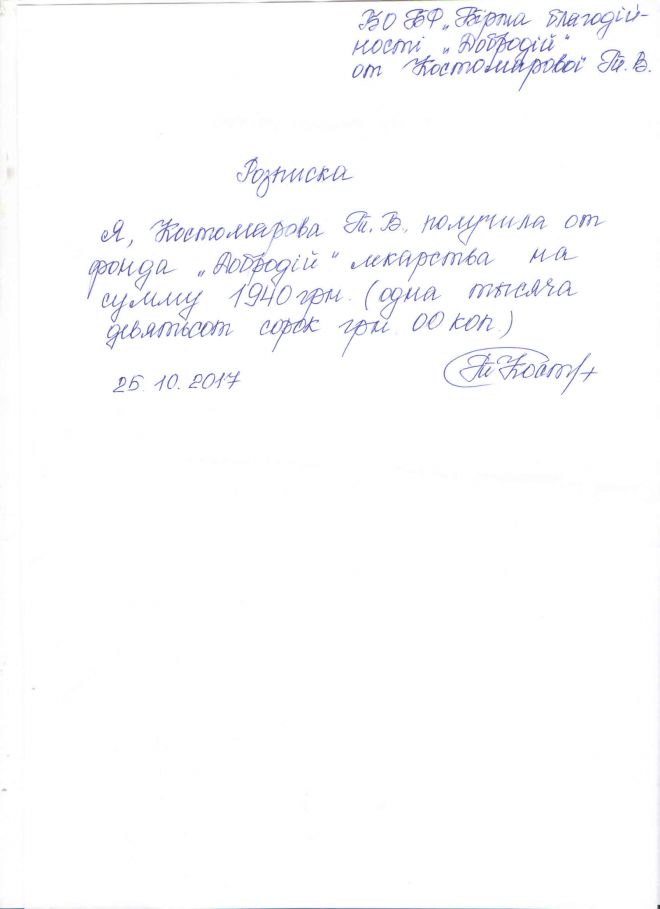 ВО БФ „Біржа благодій-
ності „Добродій"
от Костомаровой Т. В.
Розписка
Я, Костомарова Т. В., получила от
фонда „Добродій" лекарства на
сумму 1940 грн. (одна тысяча
девятьсот сорок грн. 00 коп.)
25. 10. 2017